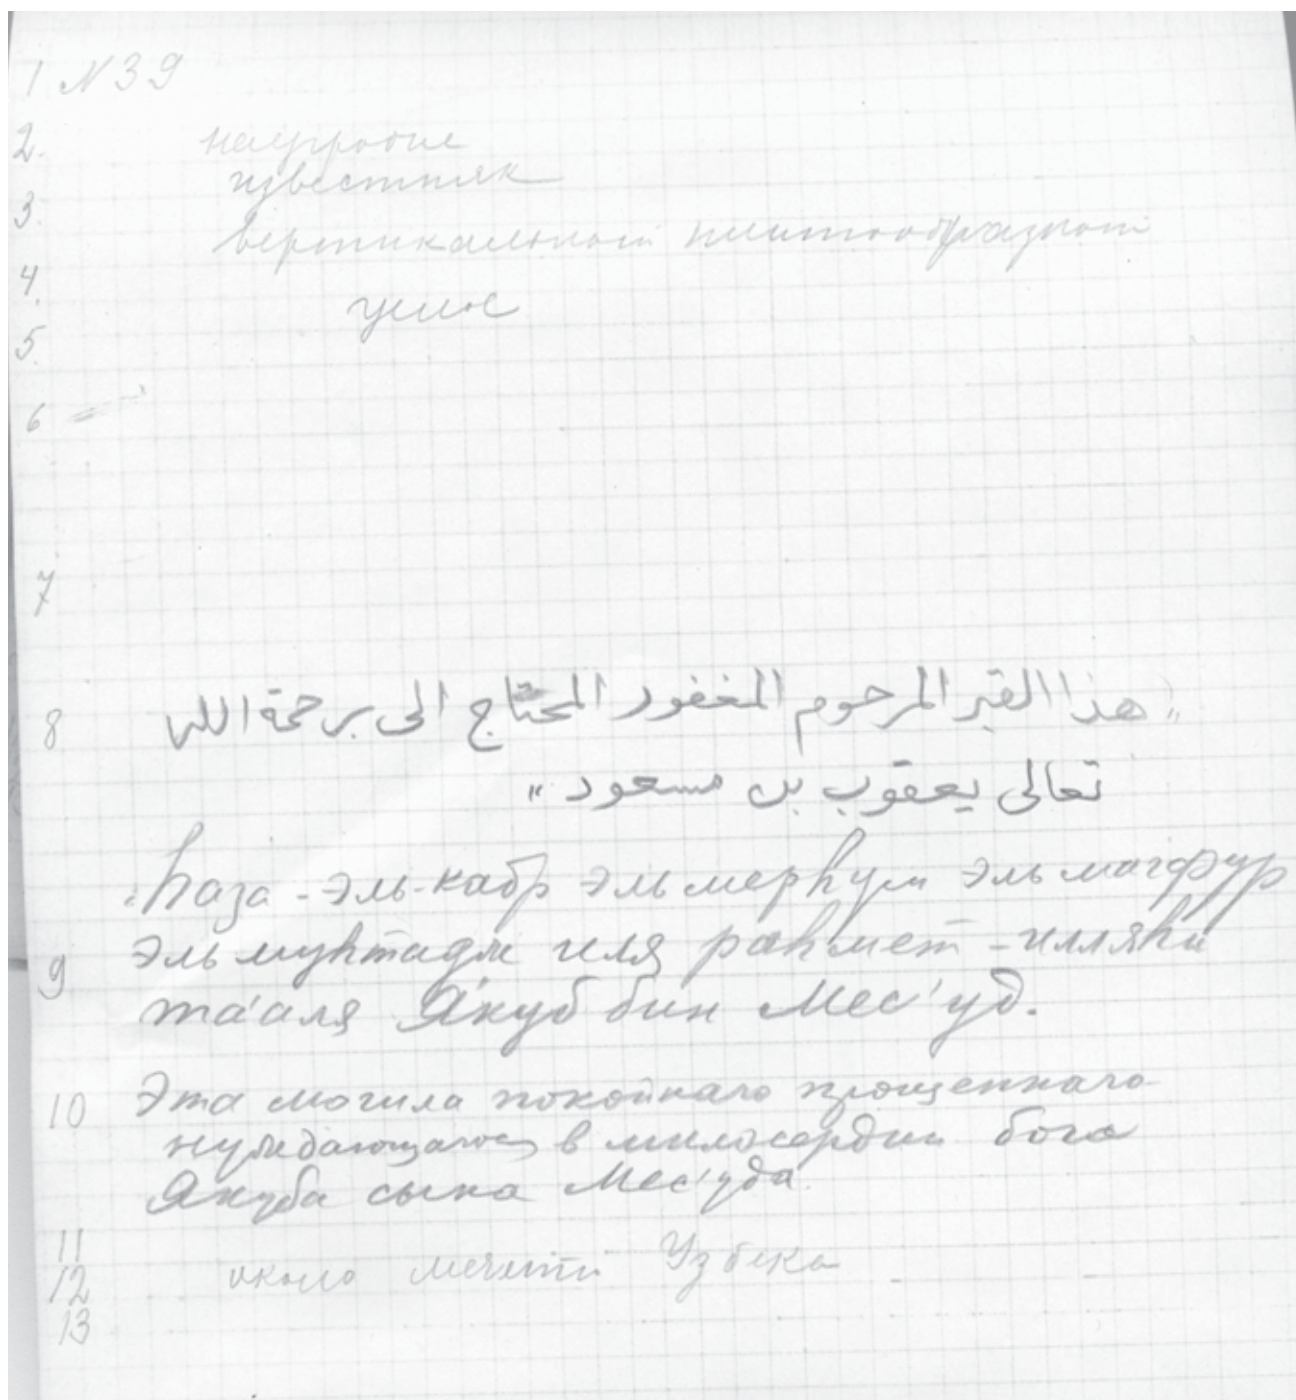 1 N39
2. надгробие
известняк
3.
вертикальный плитообразный
4.
целое
5.
6
7
8 „هذا القبر المرحوم المغفور المحتاج الى برحمة الله
تعالى يعقوب بن مسعود „
„һаза - эль-кабр эль мерһум эль магфур
9 эль муһтадж иля раһмет - илляһи
та'аля Якуб бин Мес'уд.
10 Эта могила покойнаго прощеннаго
нуждающагося в милосердии бога
Якуба сына Мес'уда.
11
12 около мечети Узбека
13